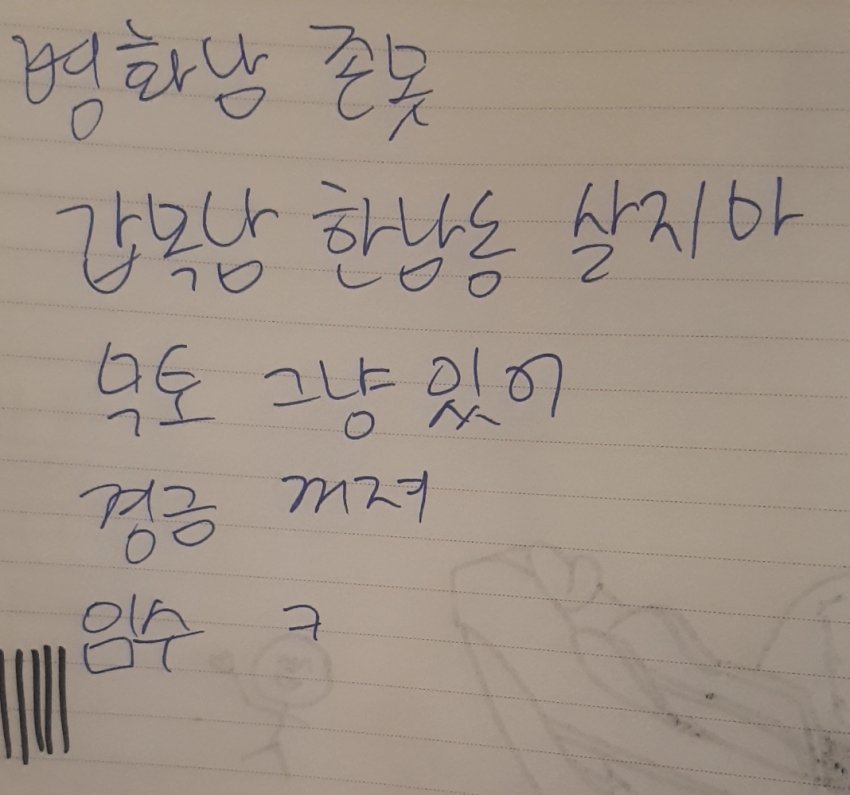 병화남 존못
갑목남 한남동 살지마
무토 그냥 있어
경금 꺼져
임수 ㅋ